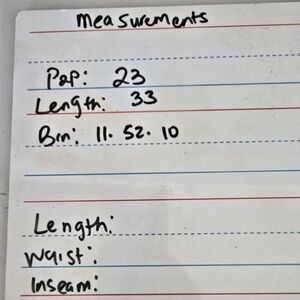 Measurements
P2P: 23
Length: 33
Bin: 11. 52. 10
Length:
Waist:
Inseam: